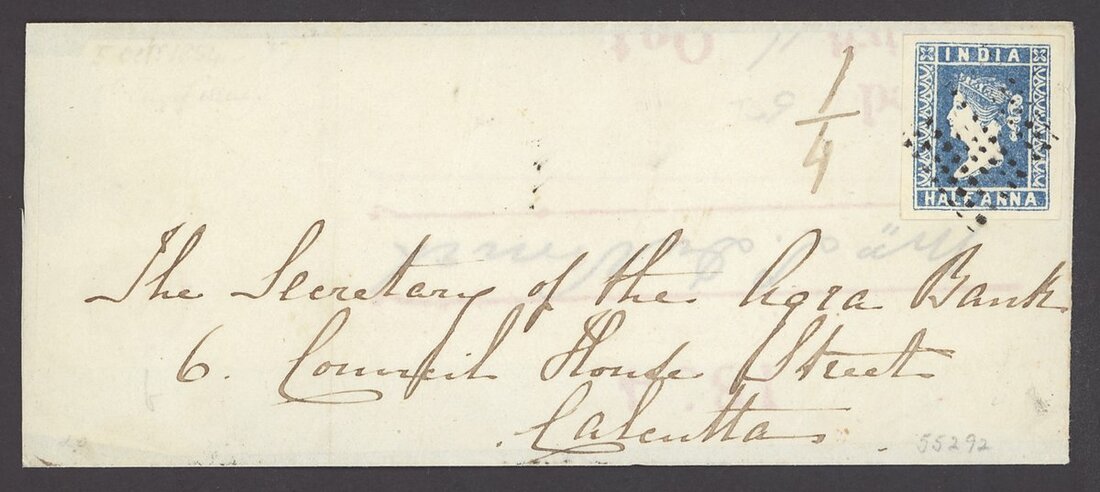 INDIA
HALF ANNA
1/4
The Secretary of the Agra Bank
6. Council House Street
Calcutta
55292